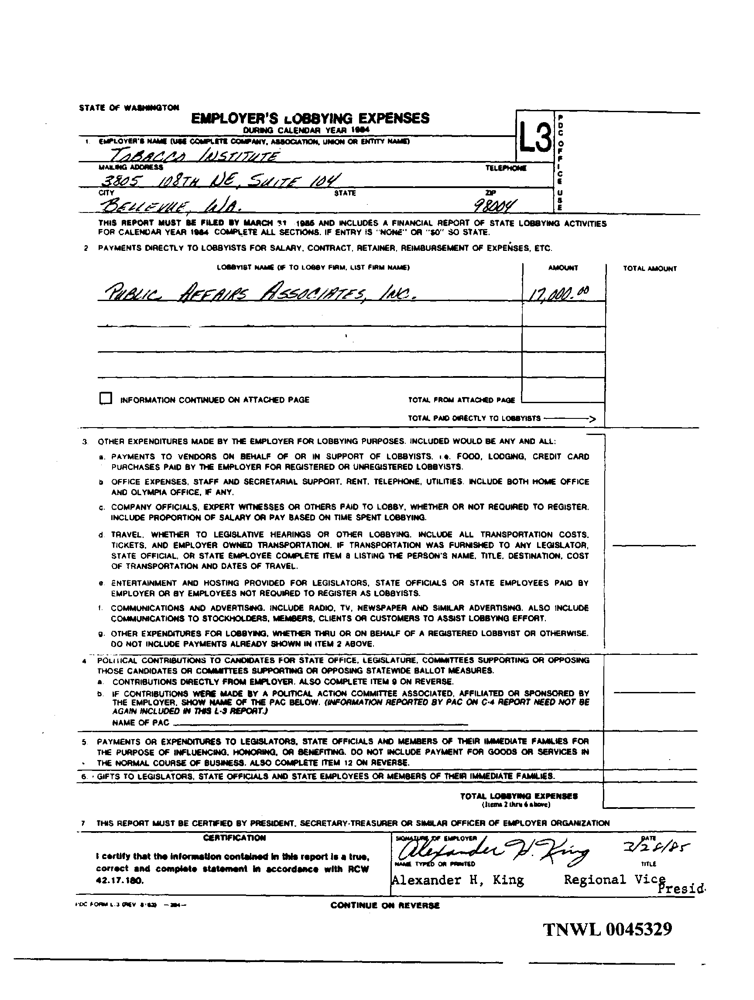 STATE OF WASHINGTON
EMPLOYER'S LOBBYING EXPENSES
DURING CALENDAR YEAR 1984
L3
PDC OFFICE USE
1. EMPLOYER'S NAME (USE COMPLETE COMPANY, ASSOCIATION, UNION OR ENTITY NAME)
TOBACCO INSTITUTE
MAILING ADDRESS TELEPHONE
3805 108TH NE, SUITE 104
CITY STATE ZIP
BELLEVUE, WA. 98004
THIS REPORT MUST BE FILED BY MARCH 31 1985 AND INCLUDES A FINANCIAL REPORT OF STATE LOBBYING ACTIVITIES
FOR CALENDAR YEAR 1984 COMPLETE ALL SECTIONS. IF ENTRY IS "NONE" OR "$0" SO STATE.
2 PAYMENTS DIRECTLY TO LOBBYISTS FOR SALARY, CONTRACT, RETAINER, REIMBURSEMENT OF EXPENSES, ETC.
LOBBYIST NAME (IF TO LOBBY FIRM, LIST FIRM NAME) AMOUNT TOTAL AMOUNT
PUBLIC AFFAIRS ASSOCIATES, INC. 17,000.00
INFORMATION CONTINUED ON ATTACHED PAGE TOTAL FROM ATTACHED PAGE
TOTAL PAID DIRECTLY TO LOBBYISTS
3 OTHER EXPENDITURES MADE BY THE EMPLOYER FOR LOBBYING PURPOSES. INCLUDED WOULD BE ANY AND ALL:
a. PAYMENTS TO VENDORS ON BEHALF OF OR IN SUPPORT OF LOBBYISTS, i.e. FOOD, LODGING, CREDIT CARD
PURCHASES PAID BY THE EMPLOYER FOR REGISTERED OR UNREGISTERED LOBBYISTS.
b OFFICE EXPENSES, STAFF AND SECRETARIAL SUPPORT, RENT, TELEPHONE, UTILITIES. INCLUDE BOTH HOME OFFICE
AND OLYMPIA OFFICE, IF ANY.
c. COMPANY OFFICIALS, EXPERT WITNESSES OR OTHERS PAID TO LOBBY, WHETHER OR NOT REQUIRED TO REGISTER.
INCLUDE PROPORTION OF SALARY OR PAY BASED ON TIME SPENT LOBBYING.
d. TRAVEL, WHETHER TO LEGISLATIVE HEARINGS OR OTHER LOBBYING. INCLUDE ALL TRANSPORTATION COSTS,
TICKETS, AND EMPLOYER OWNED TRANSPORTATION. IF TRANSPORTATION WAS FURNISHED TO ANY LEGISLATOR,
STATE OFFICIAL, OR STATE EMPLOYEE COMPLETE ITEM 8 LISTING THE PERSON'S NAME, TITLE, DESTINATION, COST
OF TRANSPORTATION AND DATES OF TRAVEL.
e. ENTERTAINMENT AND HOSTING PROVIDED FOR LEGISLATORS, STATE OFFICIALS OR STATE EMPLOYEES PAID BY
EMPLOYER OR BY EMPLOYEES NOT REQUIRED TO REGISTER AS LOBBYISTS.
f. COMMUNICATIONS AND ADVERTISING. INCLUDE RADIO, TV, NEWSPAPER AND SIMILAR ADVERTISING. ALSO INCLUDE
COMMUNICATIONS TO STOCKHOLDERS, MEMBERS, CLIENTS OR CUSTOMERS TO ASSIST LOBBYING EFFORT.
g. OTHER EXPENDITURES FOR LOBBYING, WHETHER THRU OR ON BEHALF OF A REGISTERED LOBBYIST OR OTHERWISE.
DO NOT INCLUDE PAYMENTS ALREADY SHOWN IN ITEM 2 ABOVE.
4 POLITICAL CONTRIBUTIONS TO CANDIDATES FOR STATE OFFICE, LEGISLATURE, COMMITTEES SUPPORTING OR OPPOSING
THOSE CANDIDATES OR COMMITTEES SUPPORTING OR OPPOSING STATEWIDE BALLOT MEASURES.
a. CONTRIBUTIONS DIRECTLY FROM EMPLOYER. ALSO COMPLETE ITEM 9 ON REVERSE.
b. IF CONTRIBUTIONS WERE MADE BY A POLITICAL ACTION COMMITTEE ASSOCIATED, AFFILIATED OR SPONSORED BY
THE EMPLOYER, SHOW NAME OF THE PAC BELOW. (INFORMATION REPORTED BY PAC ON C-4 REPORT NEED NOT BE
AGAIN INCLUDED IN THIS L-3 REPORT.)
NAME OF PAC
5. PAYMENTS OR EXPENDITURES TO LEGISLATORS, STATE OFFICIALS AND MEMBERS OF THEIR IMMEDIATE FAMILIES FOR
THE PURPOSE OF INFLUENCING, HONORING, OR BENEFITING. DO NOT INCLUDE PAYMENT FOR GOODS OR SERVICES IN
THE NORMAL COURSE OF BUSINESS. ALSO COMPLETE ITEM 12 ON REVERSE.
6. GIFTS TO LEGISLATORS, STATE OFFICIALS AND STATE EMPLOYEES OR MEMBERS OF THEIR IMMEDIATE FAMILIES.
TOTAL LOBBYING EXPENSES
(Items 2 thru 6 above)
7 THIS REPORT MUST BE CERTIFIED BY PRESIDENT, SECRETARY-TREASURER OR SIMILAR OFFICER OF EMPLOYER ORGANIZATION
CERTIFICATION SIGNATURE OF EMPLOYER DATE
Alexander H. King 3/28/85
I certify that the information contained in this report is a true,
correct and complete statement in accordance with RCW
42.17.180.
NAME TYPED OR PRINTED TITLE
Alexander H, King Regional Vice
Presid.
PDC FORM L-3 (REV 8-83) —284—
CONTINUE ON REVERSE
TNWL 0045329